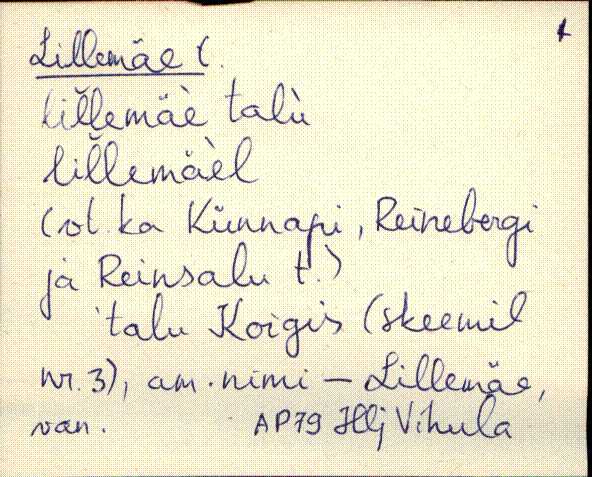 1
Lillemäe t.
lil̆lemäè talù
lil̆lemäèl
(vt. ka Künnapi, Reinebergi
ja Reinsalu t.)
talu Koigis (skeemil
nr. 3), am. nimi – Lillemäe,
van. AP79 Hlj Vihula